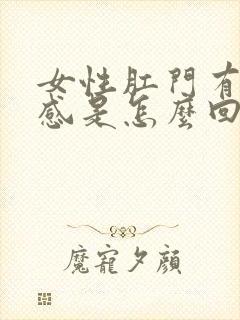 女性肛門有
感是怎麼回
魔寵夕顔